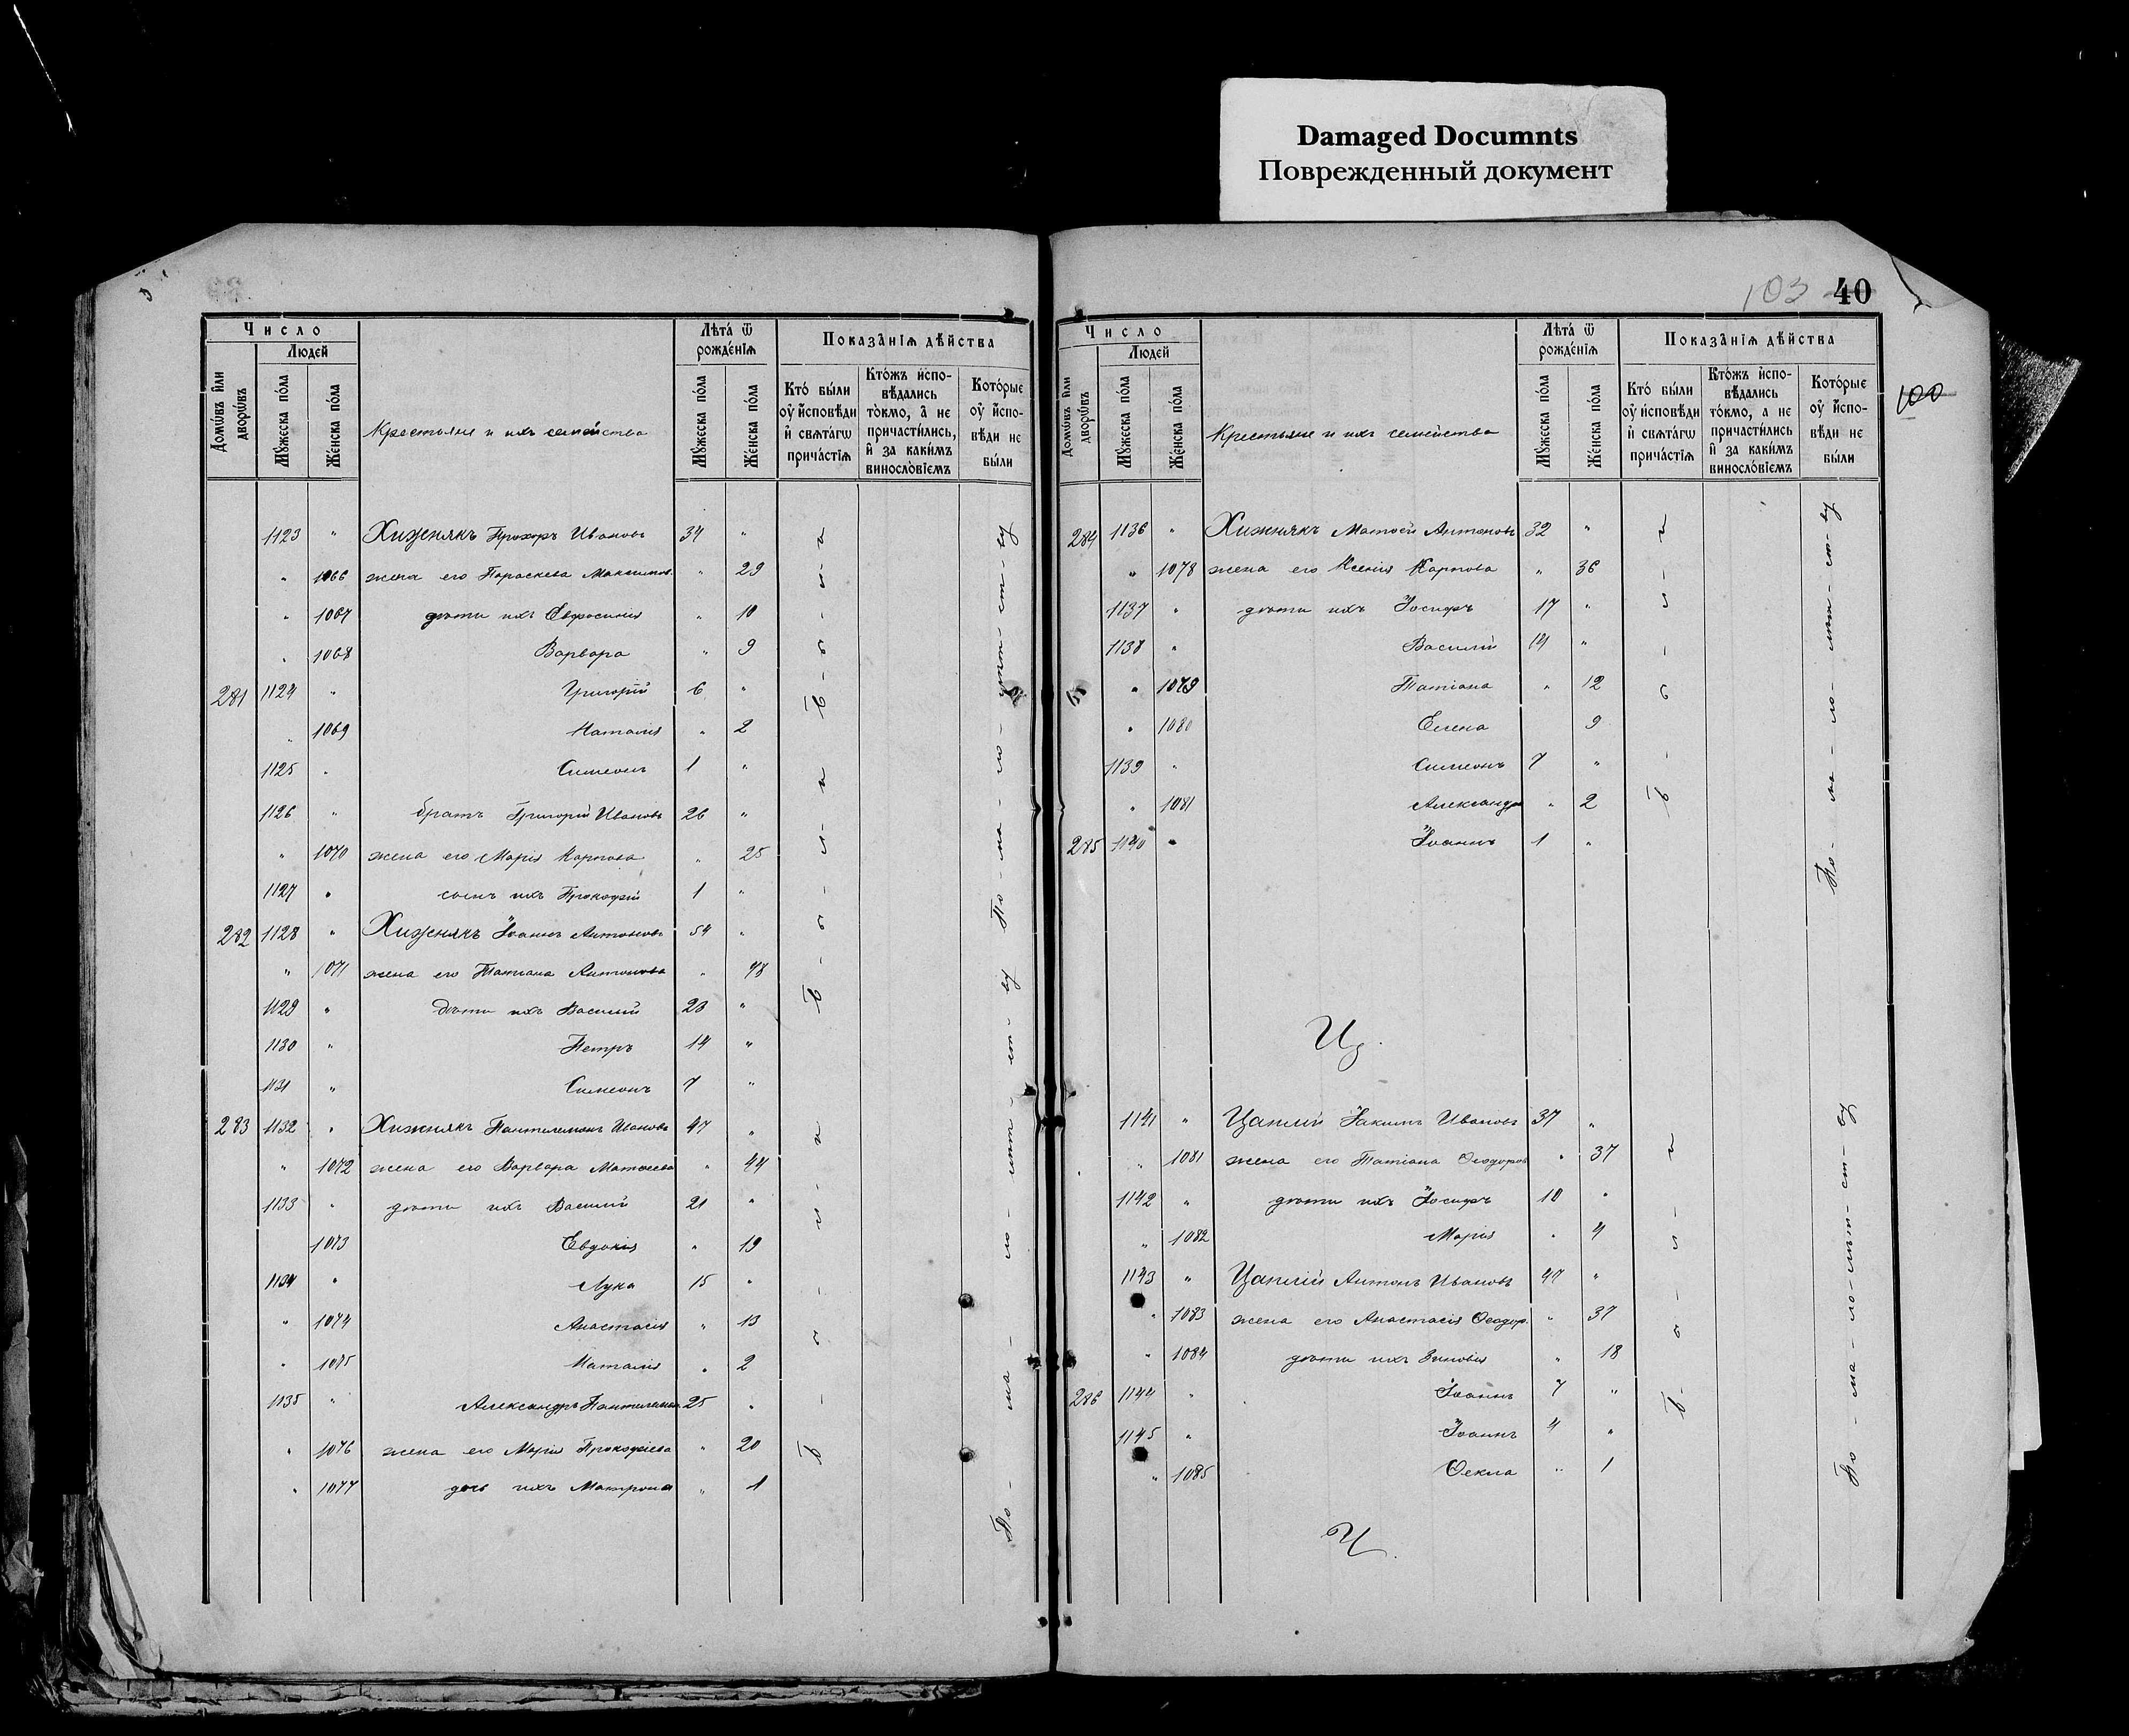 Damaged Documnts
Поврежденный документ
103 40
100
Число
Людей
Домѡвъ и҆лѝ дворѡвъ
Мꙋ́жеска по́ла
Же́нска по́ла
Крестьяне и ихъ семейства
Лѣта̀ ѿ рожде́нїѧ
Мꙋ́жеска по́ла
Же́нска по́ла
Показа̑нїѧ дѣ́йства
Кто̀ бы́ли оу҆ и҆́сповѣди и҆ свѧта́гѡ прича́стїѧ
Кто́жъ и҆спо-вѣдались то́кмо, а҆ не причасти́лись, и҆ за каки́мъ винословїемъ
Кото́рые оу҆ и҆́спо-вѣди не бы́ли
1123 " Хижнякъ Прохоръ Ивановъ 34 "
" 1066 жена его Параскева Максимов. " 29
" 1067 дѣти ихъ Евфросинія " 10
" 1068 Варвара " 9
281 1124 " Григорій 6 "
" 1069 Наталія " 2
1125 " Симеонъ 1 "
1126 " братъ Григорій Ивановъ 26 "
" 1070 жена его Марія Карпова " 25
1127 " сынъ ихъ Прокофій 1 "
282 1128 " Хижнякъ Іоаннъ Антоновъ 54 "
" 1071 жена его Татіана Антонова " 48
1129 " дѣти ихъ Василій 23 "
1130 " Петръ 14 "
1131 " Симеонъ 7 "
283 1132 " Хижнякъ Пантелимонъ Ивановъ 47 "
" 1072 жена его Варвара Матѳеева " 44
1133 " дѣти ихъ Василій 21 "
1073 Евдокія " 19
1134 " Лука 15 "
" 1074 Анастасія " 13
" 1075 Наталія " 2
1135 " Александръ Пантелимон. 25 "
" 1076 жена его Марія Прокофіева " 20
" 1077 дочь ихъ Матрона " 1
Б-ы-л-и
Б-ы-л-и
Б-ы-л-и
По-ма-ло-лѣт-ст-ву
По-ма-ло-лѣт-ст-ву
Число
Людей
Домѡвъ и҆лѝ дворѡвъ
Мꙋ́жеска по́ла
Же́нска по́ла
Крестьяне и ихъ семейства
Лѣта̀ ѿ рожде́нїѧ
Мꙋ́жеска по́ла
Же́нска по́ла
Показа̑нїѧ дѣ́йства
Кто̀ бы́ли оу҆ и҆́сповѣди и҆ свѧта́гѡ прича́стїѧ
Кто́жъ и҆спо-вѣдались то́кмо, а не причасти́лись и҆ за каки́мъ винословїемъ
Кото́рые оу҆ и҆́спо-вѣди не бы́ли
284 1136 " Хижнякъ Матѳей Антоновъ 32 "
" 1078 жена его Ксенія Карпова " 36
1137 " дѣти ихъ Іосифъ 17 "
1138 " Василій 14 "
" 1079 Татіана " 12
" 1080 Елена 9
1139 " Симеонъ 7 "
" 1081 Александра " 2
285 1140 " Іоаннъ 1 "
Ц.
1141 " Цаплій Іакимъ Ивановъ 37 "
" 1081 жена его Татіана Ѳеодоров " 37
1142 " дѣти ихъ Іосифъ 10 "
" 1082 Марія " 4
1143 " Цаплій Антонъ Ивановъ 47 "
" 1083 жена его Анастасія Ѳеодор. " 37
" 1084 дѣти ихъ Зиновія " 18
286 1144 " Іоаннъ 7 "
1145 " Іоаннъ 4 "
" 1085 Ѳекла " 1
Ч.
Б-ы-л-и
Б-ы-л-и
По-ма-ло-лѣт-ст-ву
По-ма-ло-лѣт-ст-ву